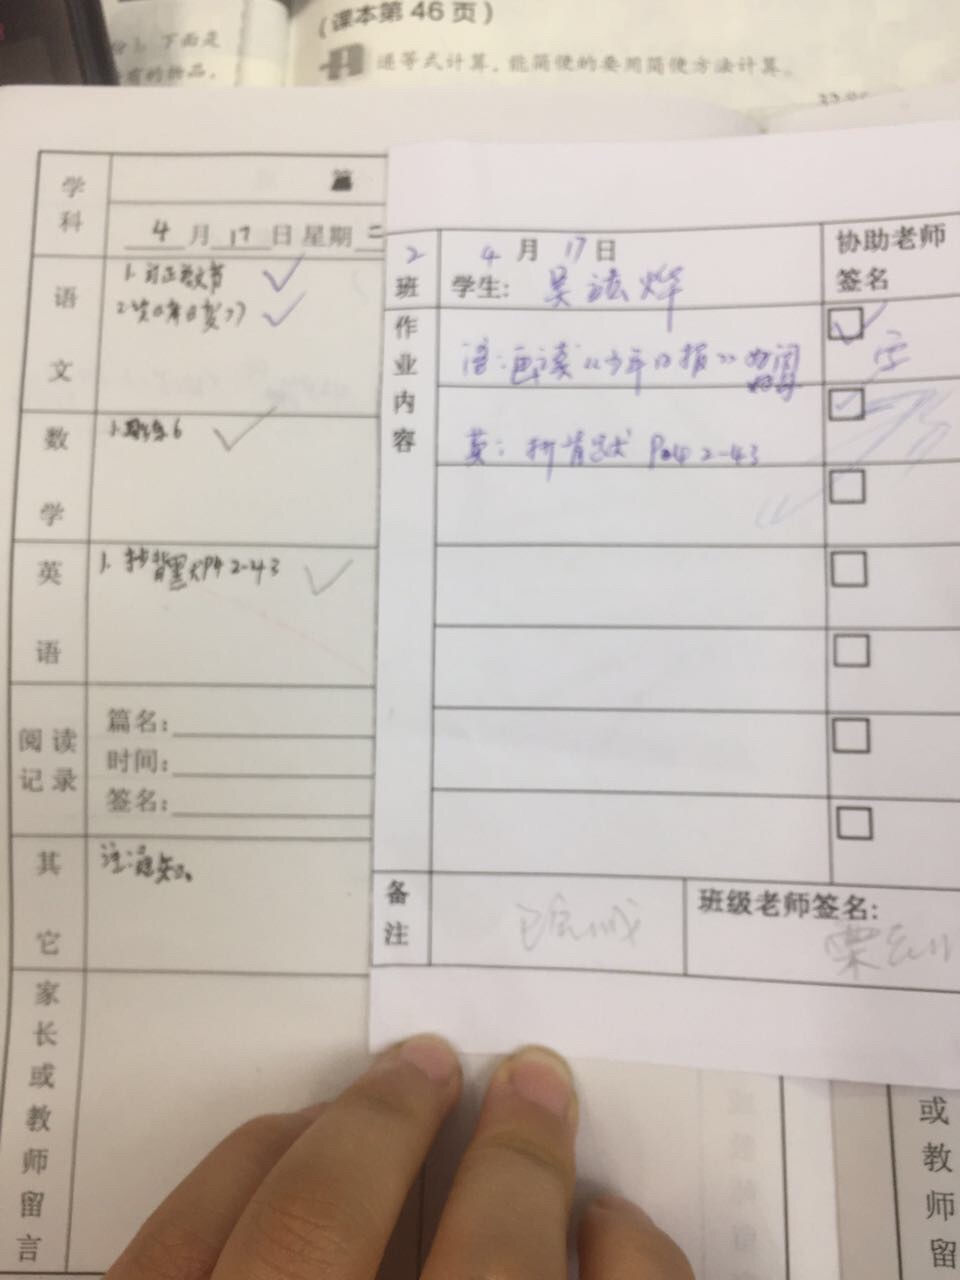 (课本第 46 页)
下面是
有的物品，
递等式计算，能简便的要用简便方法计算。
学科
4月17日 星期二
语文
1. 订正
2.
数学
1. 6
英语
1. 抄背默 P42-43
阅读记录
篇名：
时间：
签名：
其它
注:通知。
家长或教师留言
2班
4月17日
学生：吴
协助老师签名
作业内容
语：画读《少年日报》
英：抄背默 P42-43
备注
已完成
班级老师签名：
或教师留